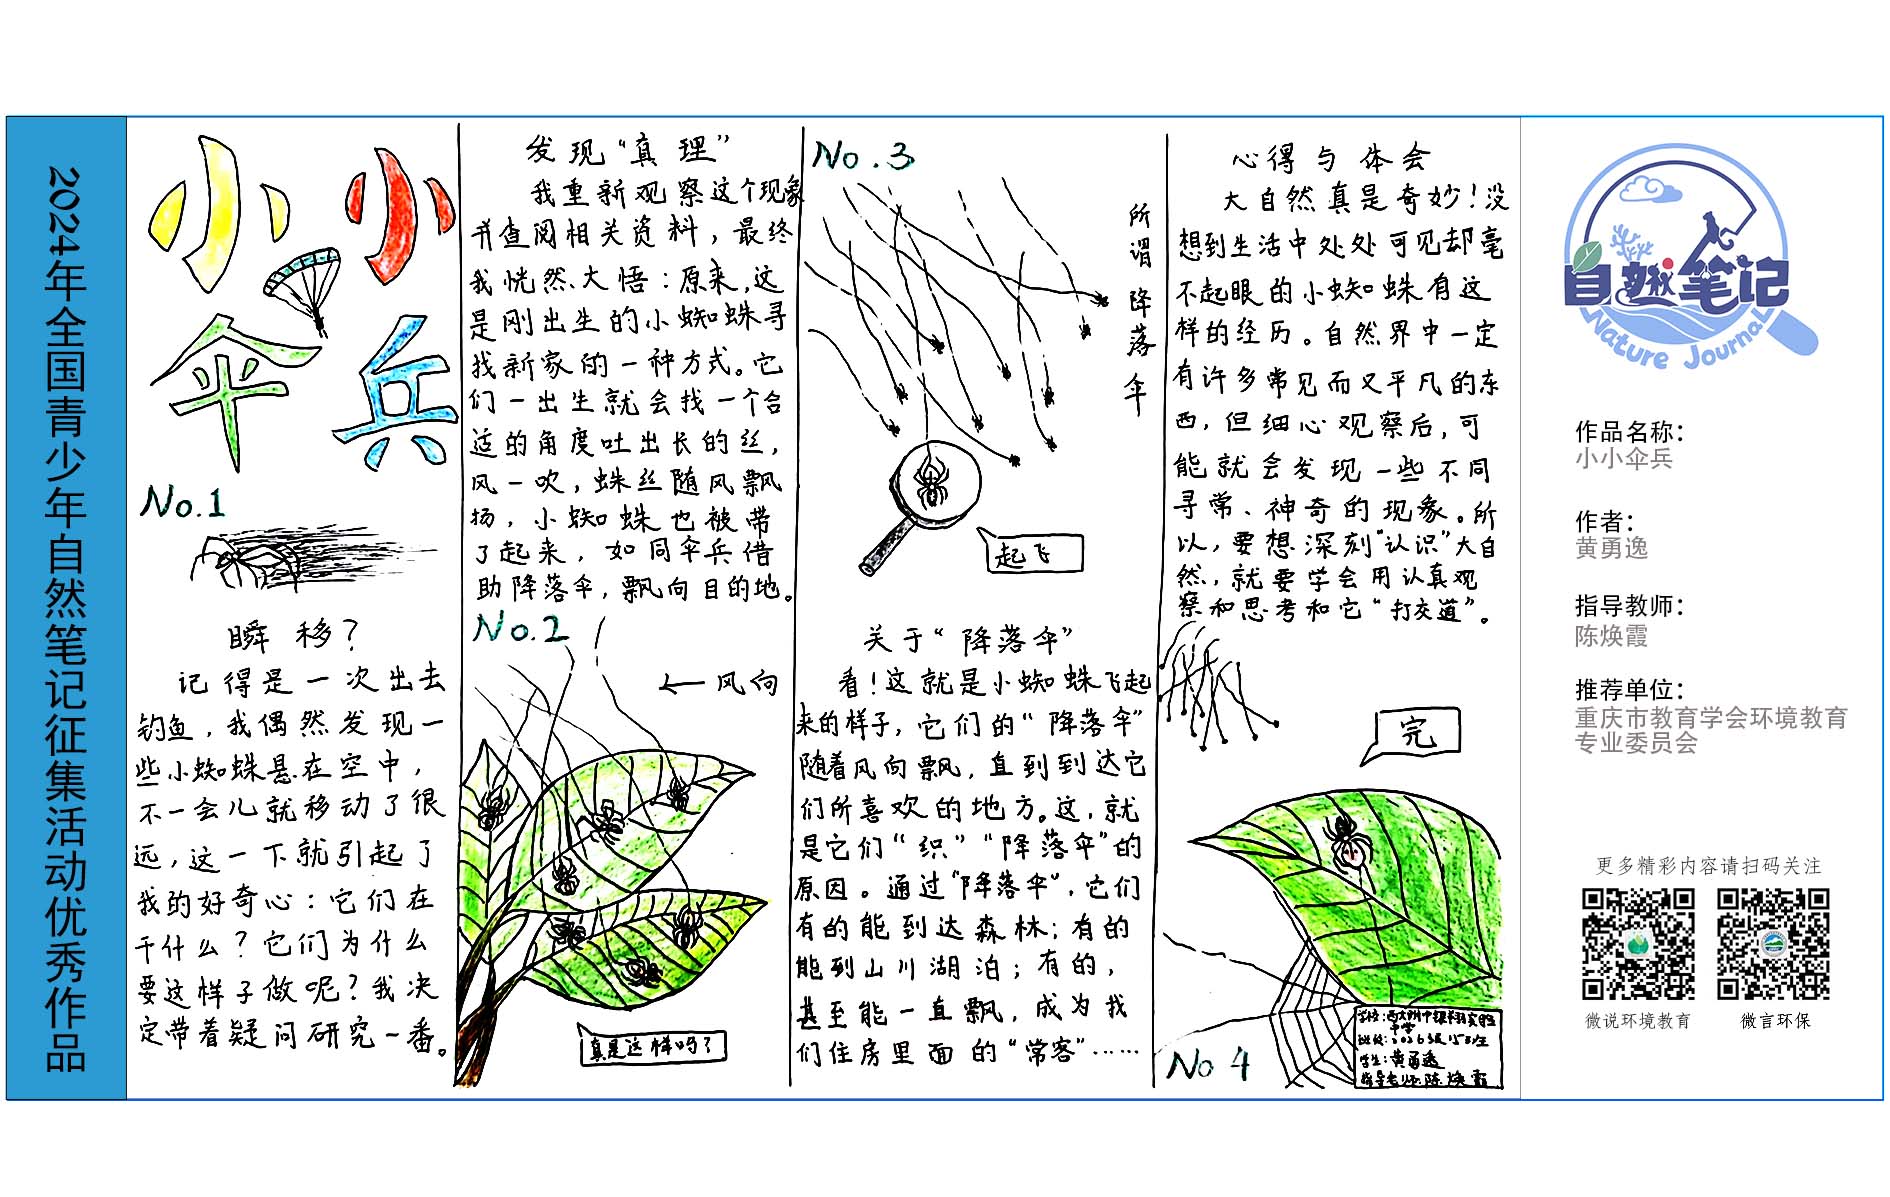 2024年全国青少年自然笔记征集活动优秀作品
小小
伞兵
No.1
瞬移?
记得是一次出去
钓鱼，我偶然发现一
些小蜘蛛悬在空中，
不一会儿就移动了很
远，这一下就引起了
我的好奇心：它们在
干什么？它们为什么
要这样子做呢？我决
定带着疑问研究一番。
发现“真理”
我重新观察这个现象
并查阅相关资料，最终
我恍然大悟：原来，这
是刚出生的小蜘蛛寻
找新家的一种方式。它
们一出生就会找一个合
适的角度吐出长的丝，
风一吹，蛛丝随风飘
扬，小蜘蛛也被带
了起来，如同伞兵借
助降落伞，飘向目的地。
No.2
←风向
真是这样吗？
No.3
所谓降落伞
起飞
关于“降落伞”
看！这就是小蜘蛛飞起
来的样子，它们的“降落伞”
随着风向飘，直到到达它
们所喜欢的地方。这，就
是它们“织”“降落伞”的
原因。通过“降落伞”，它们
有的能到达森林；有的
能到山川湖泊；有的，
甚至能一直飘，成为我
们住房里面的“常客”……
心得与体会
大自然真是奇妙！没
想到生活中处处可见却毫
不起眼的小蜘蛛有这
样的经历。自然界中一定
有许多常见而又平凡的东
西，但细心观察后，可
能就会发现一些不同
寻常、神奇的现象。所
以，要想深刻“认识”大自
然，就要学会用认真观
察和思考和它“打交道”。
完
No 4
学校：西大附中银翔实验
中学
班级：2026级15班
学生：黄勇逸
指导老师：陈焕霞
自然笔记
Nature Journal
作品名称：
小小伞兵
作者：
黄勇逸
指导教师：
陈焕霞
推荐单位：
重庆市教育学会环境教育
专业委员会
更多精彩内容请扫码关注
微说环境教育
微言环保